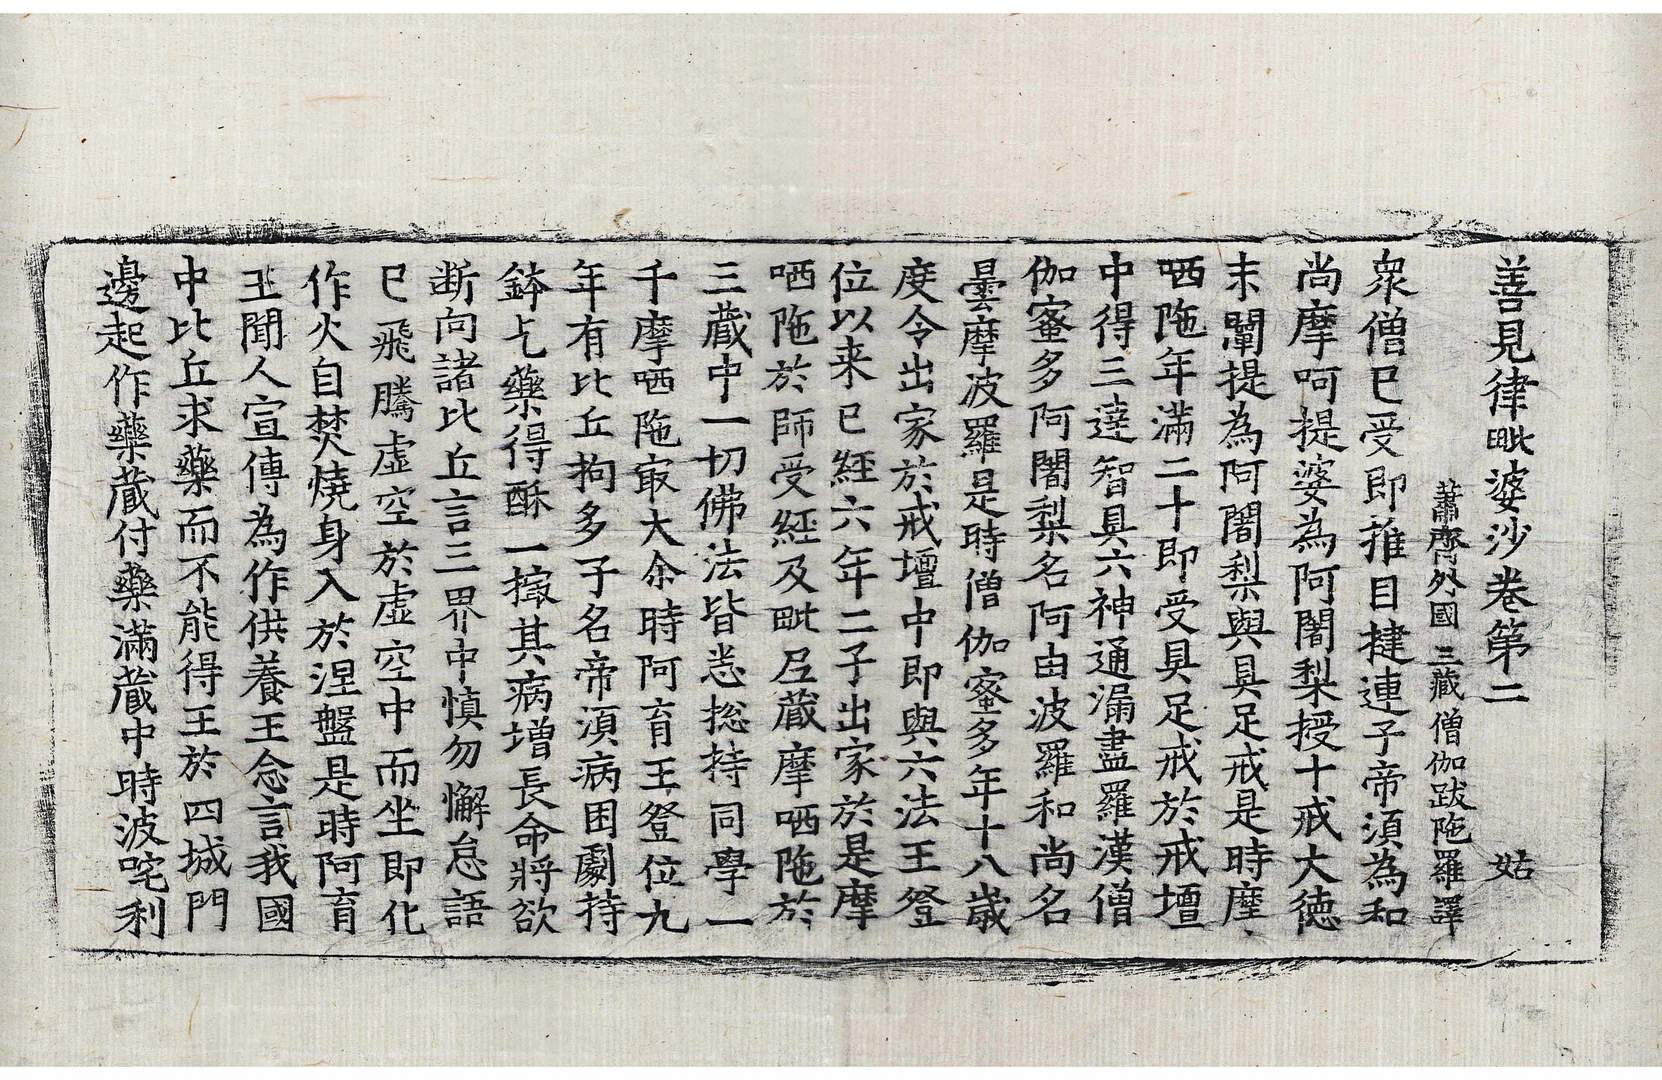 善見律毗婆沙卷第二 姑
蕭齊外國三藏僧伽跋陁羅譯
衆僧已受即推目揵連子帝須為和
尚摩呵提婆為阿闍梨授十戒大徳
末闡提為阿闍梨與具足戒是時摩
哂陁年滿二十即受具足戒於戒壇
中得三達智具六神通漏盡羅漢僧
伽蜜多阿闍梨名阿由波羅和尚名
曇摩波羅是時僧伽蜜多年十八歲
度令出家於戒壇中即與六法王登
位以来已經六年二子出家於是摩
哂陁於師受經及毗尼藏摩哂陁於
三藏中一切佛法皆悉捴持同學一
千摩哂陁㝡大余時阿育王登位九
年有比丘拘多子名帝須病困劇持
鉢乞藥得酥一撮其病增長命將欲
断向諸比丘言三界中慎勿懈怠語
已飛騰虛空於虛空中而坐即化
作火自焚燒身入於涅盤是時阿育
王聞人宣傳為作供養王念言我國
中比丘求藥而不能得王於四城門
邊起作藥藏付藥滿藏中時波咤利